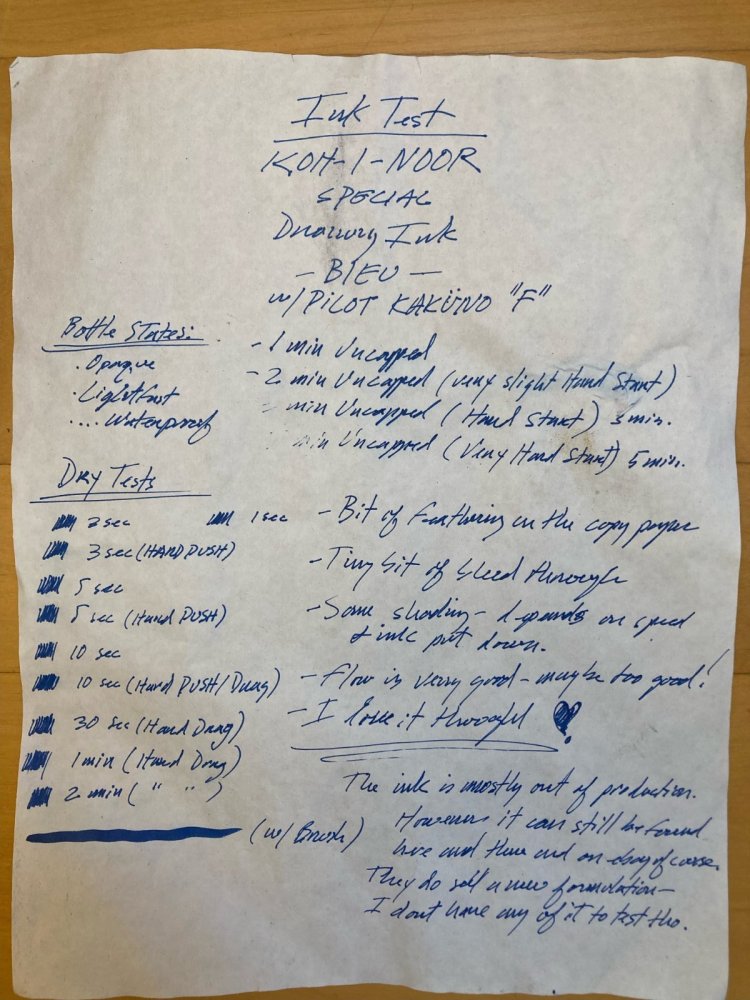 Ink Test
KOH-I-NOOR
SPECIAL
Drawing Ink
- BLEU -
w/ PILOT KAKÜNO "F"
Bottle States:
. Opaque
. Lightfast
.... Waterproof
- 1 min Uncapped
- 2 min Uncapped (very slight Hard Start)
min Uncapped (Hard Start) 3 min.
min Uncapped (Very Hard Start) 5 min.
DRY TESTS
2 sec
1 sec
3 sec (HARD PUSH)
5 sec
5 sec (Hard PUSH)
10 sec
10 sec (Hard PUSH/Drag)
30 sec (Hard Drag)
1 min (Hard Drag)
2 min ( " " )
(w/ Brush)
- Bit of Feathering on the copy paper
- Tiny bit of bleed through
- Some shading - depends on speed
& ink put down.
- Flow is very good - maybe too good!
- I love it though!
The ink is mostly out of production.
However it can still be found
here and there and on ebay of course.
They do sell a new formulation -
I dont have any of it to test tho.